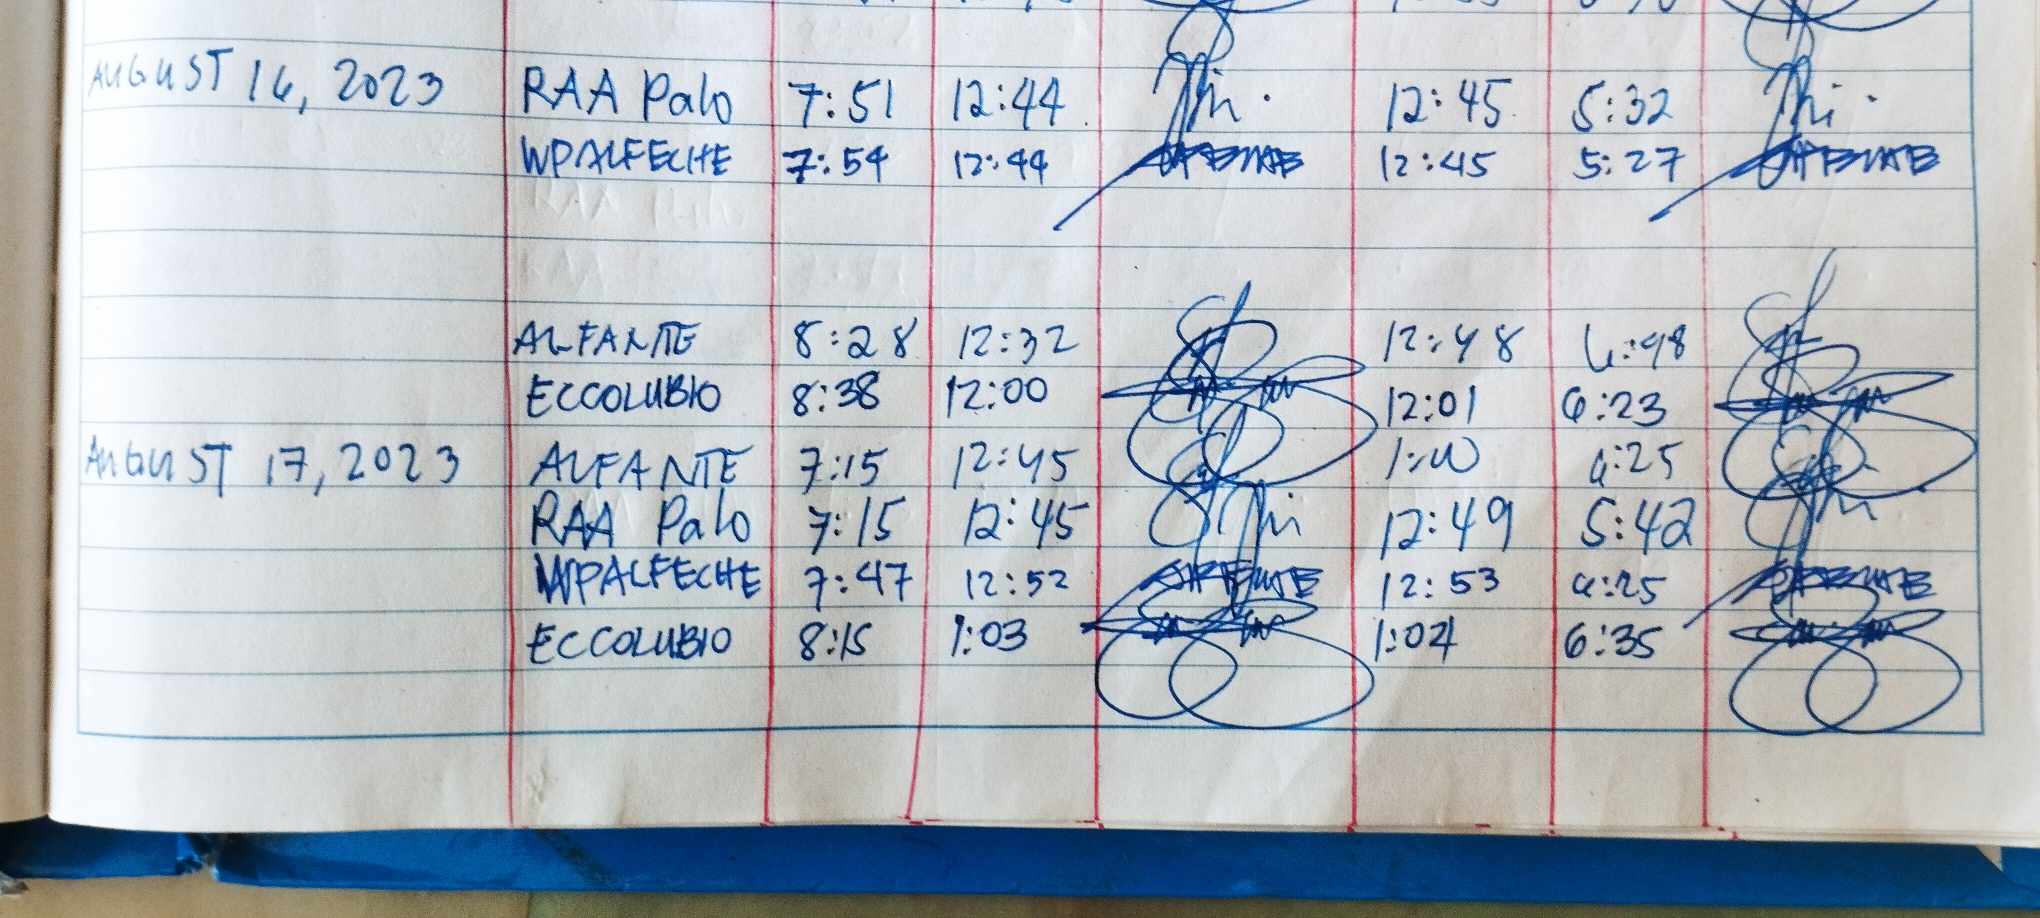 AUGUST 16, 2023 RAA Palo 7:51 12:44 12:45 5:32
WPALFECHE 7:54 12:44 12:45 5:27
ALFANTE 8:28 12:32 12:48
ECCOLUBIO 8:38 12:00 12:01 6:23
AUGUST 17, 2023 ALFANTE 7:15 12:45 1:00
RAA Palo 7:15 12:45 12:49 5:42
WPALFECHE 7:47 12:52 12:53
ECCOLUBIO 8:15 1:03 1:04 6:35